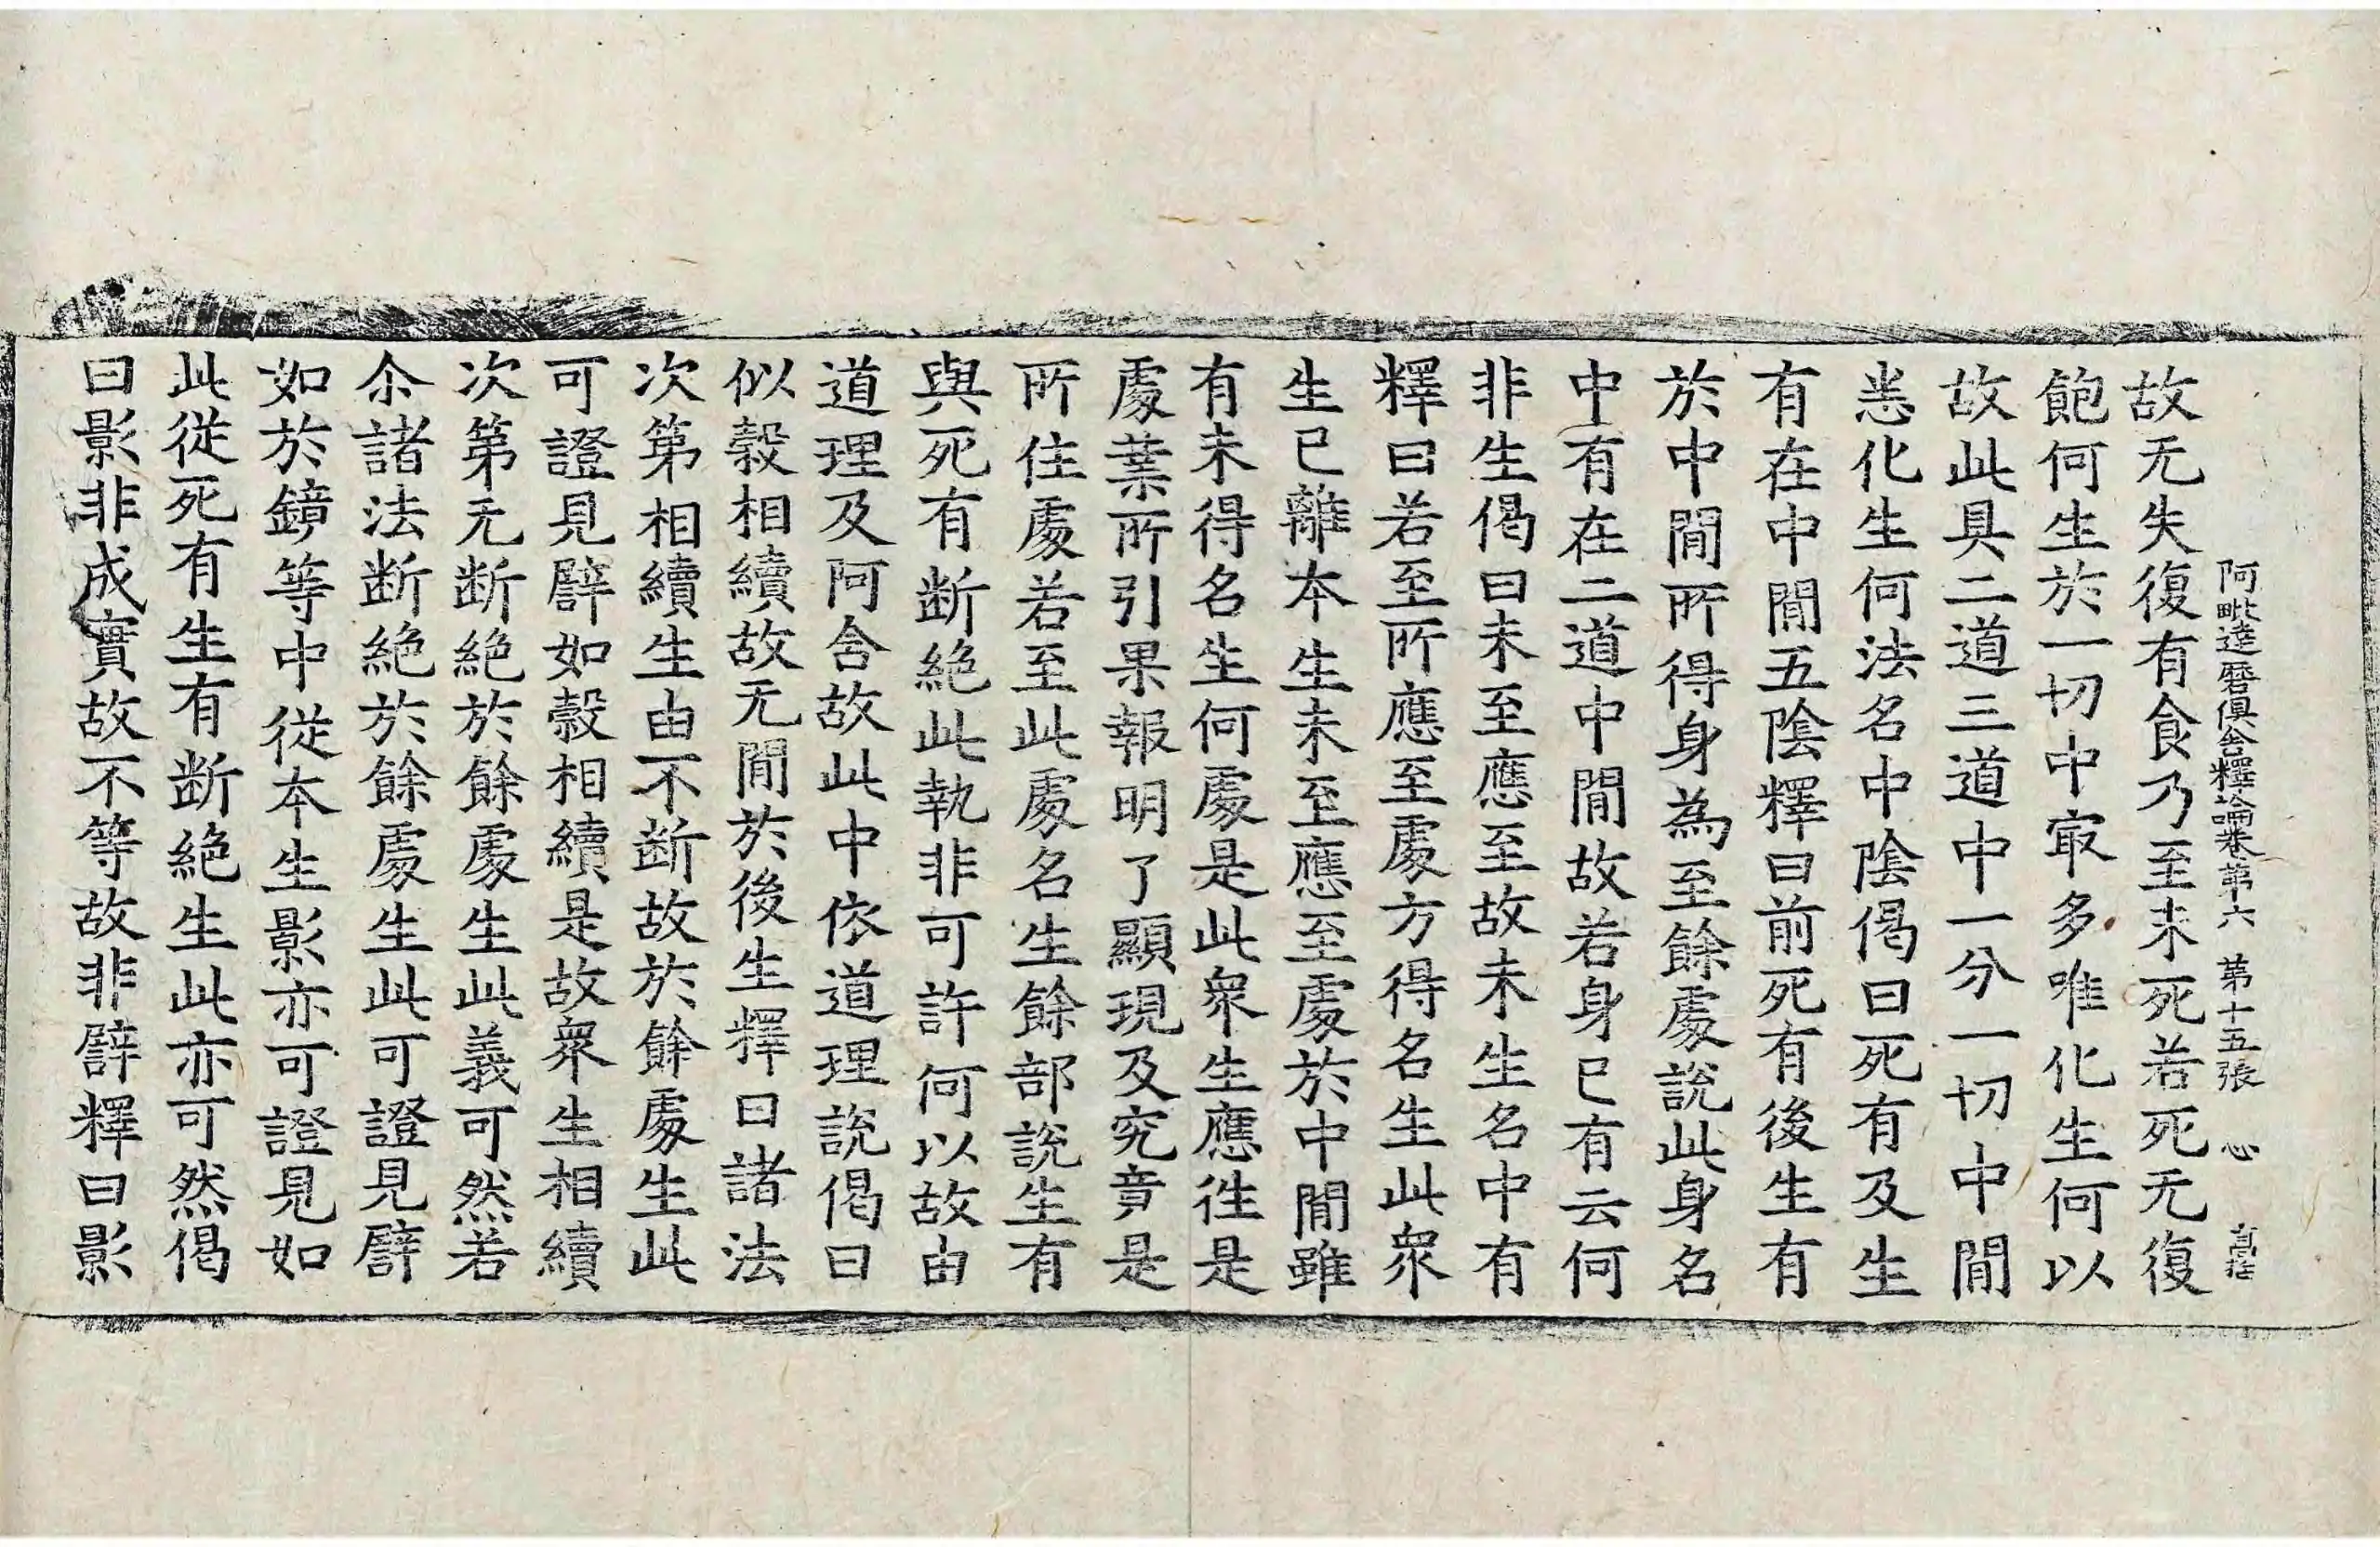 阿毗達磨俱舍釋論卷第六 第十五張 心
故无失復有食乃至未死若死无復
飽何生於一切中㝡多唯化生何以
故此具二道三道中一分一切中間
恙化生何法名中陰偈曰死有及生
有在中間五陰釋曰前死有後生有
於中間所得身為至餘處說此身名
中有在二道中間故若身已有云何
非生偈曰未至應至故未生名中有
釋曰若至所應至處方得名生此衆
生已離本生未至應至處於中間雖
有未得名生何處是此衆生應徃是
處業所引果報明了顯現及究竟是
所住處若至此處名生餘部說生有
與死有断絶此執非可許何以故由
道理及阿含故此中依道理說偈曰
似穀相續故无間於後生釋曰諸法
次第相續生由不断故於餘處生此
可證見譬如穀相續是故衆生相續
次第无断絶於餘處生此義可然若
尒諸法断絶於餘處生此可證見譬
如於鏡等中從本生影亦可證見如
此從死有生有断絶生此亦可然偈
曰影非成實故不等故非譬釋曰影